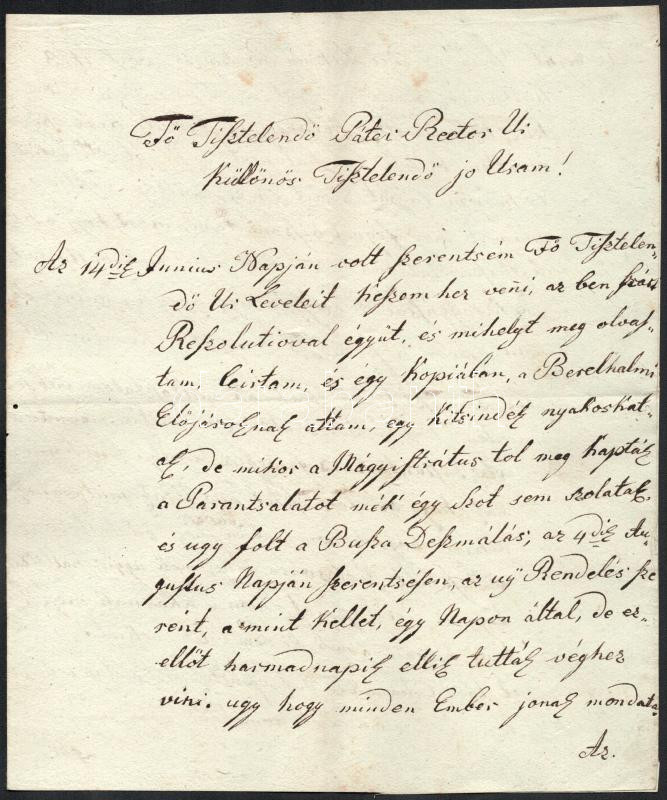 Fö Tisztelendö Páter Rector Ur
Küllönös Tisztelendö jo Uram!
Az 14dik Junius Napján volt szerentsém Fö Tisztelen-
dö Ur Leveleit kezemhez venni, az ben zárt
Reszolutioval égyüt, és mihelyt meg olvas-
tam, leirtam, és égy kopiában, a Berelhalmi
Elöjároknak attam, egy kitsindék nyakoskat-
ak, de mikor a Mágyistrátus tol meg kapták
a Parantsalatot mék égy szot sem szolatak,
és ugy folt a Busza Deszmálás, az 4dik Au-
gustus Napján szerentsésen, az uÿ Rendelés sze
rent, a mint kellet, égy Napon által, de ez-
ellöt harmadnapik ellik tutták véghez
vini. ugy hogy minden Ember jonak mondata
Az.